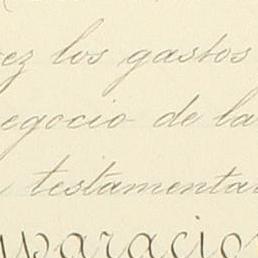 ez los gastos
egocio de la
testamenta
paracio